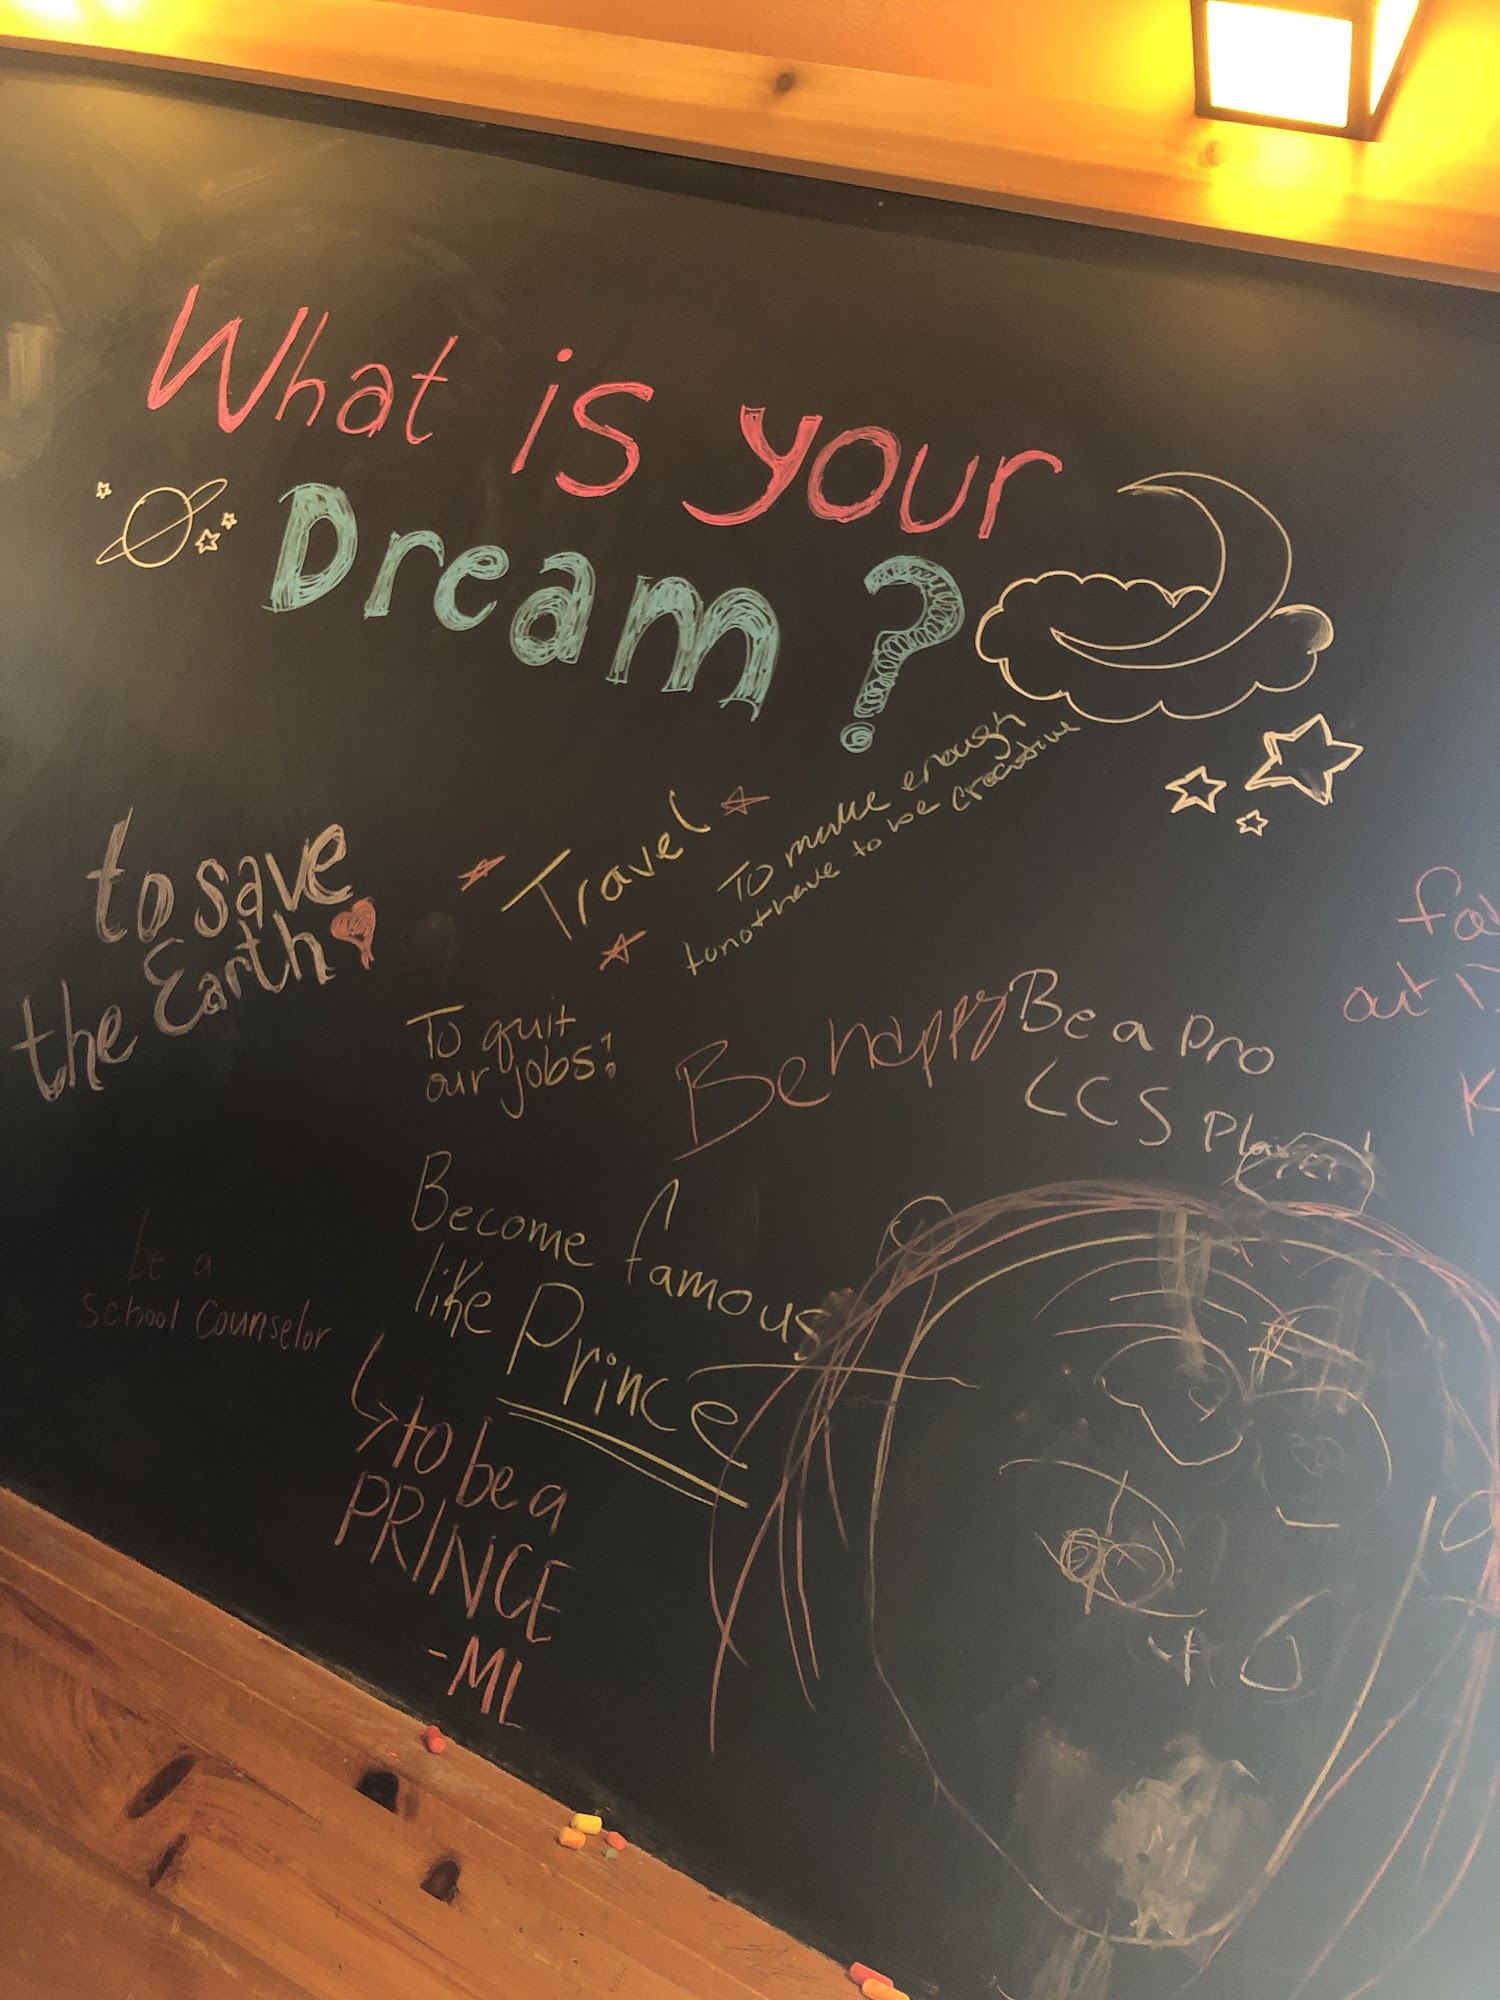 What is your
Dream ?
Travel
To make enough
to not have to be creative
to save
the Earth
To quit
our jobs!
Be happy
Be a pro
LCS Player
out
Become famous
like Prince
be a
School Counselor
to be a
PRINCE
-ML